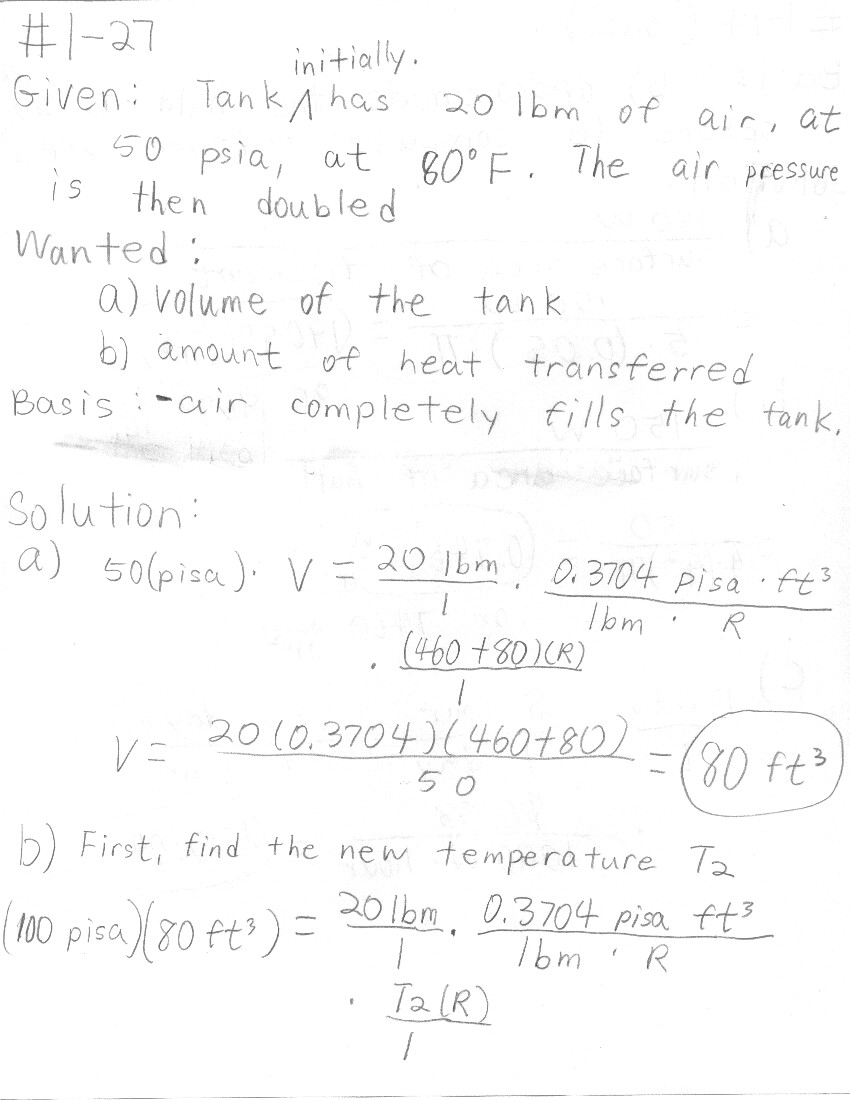 #1-27
initially.
Given: Tank ∧ has 20 lbm of air, at
50 psia, at 80°F. The air pressure
is then doubled
Wanted:
a) volume of the tank
b) amount of heat transferred
Basis: -air completely fills the tank.
Solution:
a) 50(pisa). V = 20 lbm / 1 . 0.3704 pisa . ft³ / lbm . R
. (460 + 80)(R) / 1
V = 20 (0.3704)(460+80) / 50 = 80 ft³
b) First, find the new temperature T2
(100 pisa)(80 ft³) = 20 lbm / 1 . 0.3704 pisa ft³ / lbm . R
. T2 (R) / 1